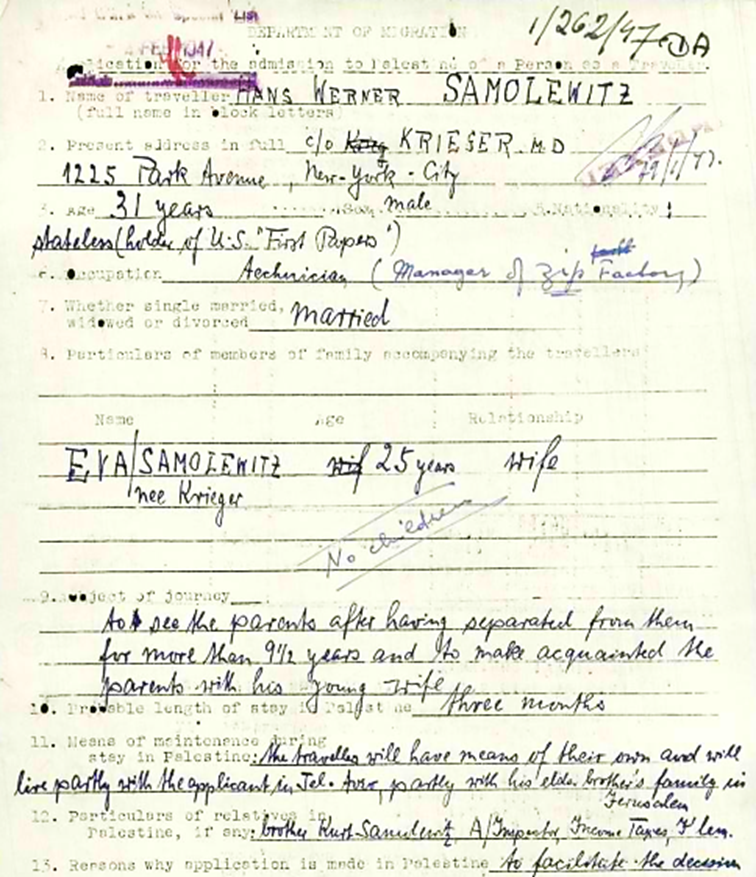 Special List
1/262/47-DA
DEPARTMENT OF MIGRATION
4 FEB 1947
Application for the admission to Palestine of a Person as a Traveller.
1. Name of traveller HANS WERNER SAMOLEWITZ
(full name in block letters)
2. Present address in full c/o KRIEGER MD
1225 Park Avenue, New-York-City
3. Age 31 years Sex male 5. Nationality:
stateless (holder of U.S. "First Papers")
6. Occupation technician (Manager of Zip Factory)
7. Whether single married,
widowed or divorced married
8. Particulars of members of family accompanying the travellers
Name Age Relationship
EVA/SAMOLEWITZ 25 years wife
nee Krieger
No children
9. Object of journey
to see the parents after having separated from them
for more than 9 1/2 years and to make acquainted the
parents with his young wife
10. Probable length of stay in Palestine three months
11. Means of maintenance during
stay in Palestine: the traveller will have means of their own and will
live partly with the applicant in Tel-Aviv, partly with his elder brother's family in
Jerusalem
12. Particulars of relatives in
Palestine, if any: brother Kurt Samolewitz, A/Inspector, Income Taxes, J'lem.
13. Reasons why application is made in Palestine to facilitate the decision